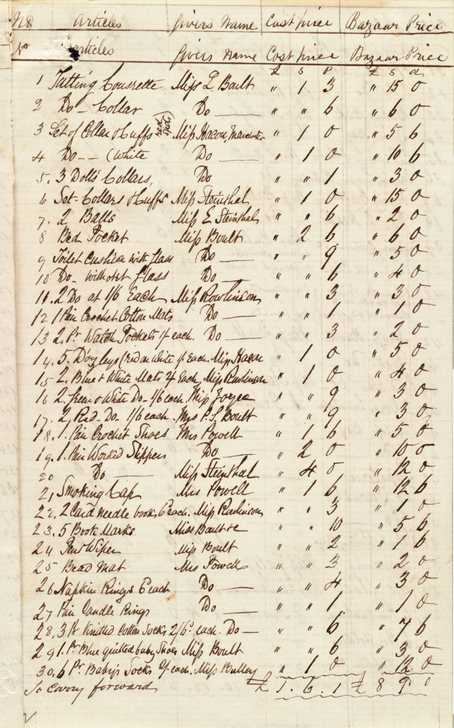 No Articles Givers Name Cost price Bazaar Price
Articles Givers Name Cost price Bazaar Price
£ s £ s d
1 Tatting Couvrette Miss L Boult " 1 3 " 15 0
2 Do - Collar Do " " 6 " 6 0
3 Set of Collar & Cuffs Miss Hacon " 1 0 " 5 6
4 Do - - (White Do " 1 0 " 10 6
5. 3 Dolls Collars, Do " " 1 " 3 0
6 Set Collars & Cuffs Miss Steinthal " 1 0 " 15 0
7. 2 Balls Miss E Steinthal " " 6 " 2 0
8 Bed Pocket Miss Boult " 2 6 " 6 0
9 Toilet Cushion with glass Do " " 9 " 5 0
10 Do. without glass Do " " 6 " 4 0
11. 2 Do at 1/6 Each Miss Rawlinson " " 3 " 3 0
12 1 Pair Crochet Cotton Mats Do " " 1 " 1 0
13 2. Pr Watch Pockets 1/ each. Do " " 3 " 2 0
14. 5. Doyleys (red on White 1/ Each. Miss Hacon " 1 0 " 5 0
15 2, Blue & White Mats 2/ Each, Miss Rawlinson " 1 0 " 4 0
16 2, & White Do - 1/6 each. Miss Joyce " " 9 " 3 0
17. 2, Red Do. 1/6 each. Miss P. L Boult " " 9 " 3 0
18. 1. Pair Crochet Shoes Mrs Powell " 1 6 " 5 0
19. 1. Pair Worked Slippers Do " 2 0 " 10 0
20 Do Miss Steinthal " 4 0 " 12 0
21 Smoking Cap Mrs Powell " 1 6 " 12 6
22. 2 Card needle books 6 each. Miss Rawlinson " " 3 " 1 0
23. 5 Book Marks Miss Boult " " 10 " 5 6
24 Pen Wiper Miss Boult " " 2 " 1 6
25 Bead Mat Mrs Powell " " 3 " 2 0
26 Napkin Rings 6 each Do " " 4 " 3 0
27 Pair Candle Rings Do " " 1 " 1 0
28. 3 Pr Knitted Cotton Socks 2/6d each. Do " " 6 " 7 6
29 1. Pr Blue quilted baby Shoes Miss Boult " " 6 " 3 0
30. 6 Pr. Baby's Socks 2/ each. Miss Bulley " 1 0 " 12 0
To Carry forward £ 1. 6. 1 £ 8 9